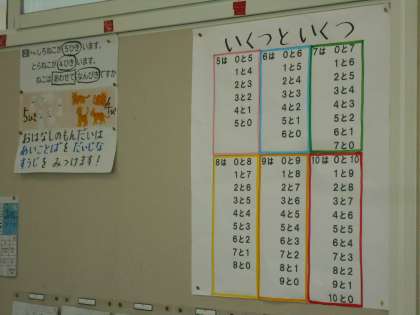 しろねこが 5ひき います。
とらねこが 4ひき います。
ねこは あわせて なんびきですか
おはなしのもんだいは
あいことばを だいじな
すうじを みつけます！
いくつと いくつ
5は 0と5
1と4
2と3
3と2
4と1
5と0
6は 0と6
1と5
2と4
3と3
4と2
5と1
6と0
7は 0と7
1と6
2と5
3と4
4と3
5と2
6と1
7と0
8は 0と8
1と7
2と6
3と5
4と4
5と3
6と2
7と1
8と0
9は 0と9
1と8
2と7
3と6
4と5
5と4
6と3
7と2
8と1
9と0
10は 0と10
1と9
2と8
3と7
4と6
5と5
6と4
7と3
8と2
9と1
10と0